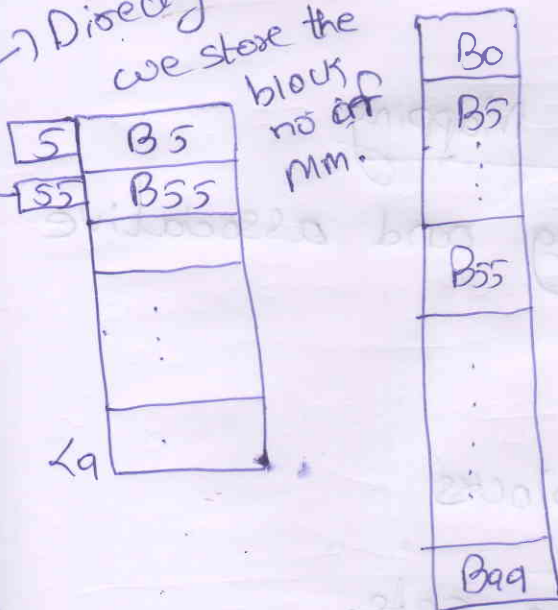 → Directly
we store the
block
no of
MM.
5 B5
55 B55
L9
B0
B5
B55
B99